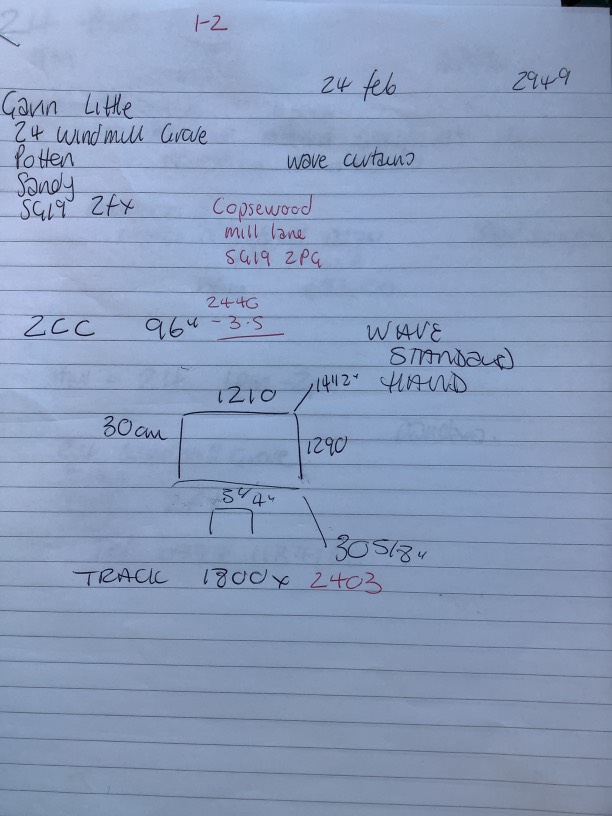 1-2
24 feb 2949
Gavin Little
24 Windmill Grove
Potten
wave curtains
Sandy
SG19 2fx
Copsewood
mill lane
SG19 2PG
2440
2CC 96" - 3.5
WAVE
STANDARD
HAND
1210
30cm
1290
TRACK 1800 x 2403